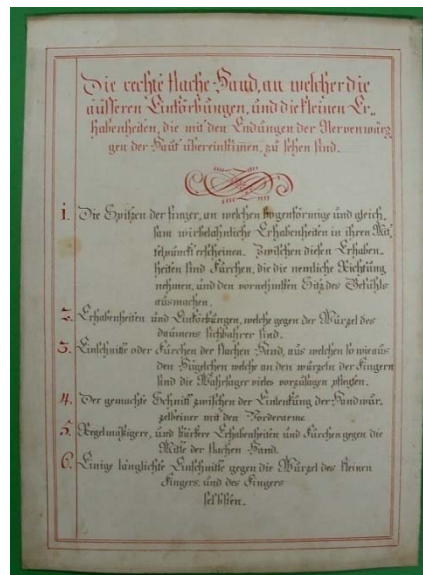 Die rechte flache Hand, an welcher die
äüsseren Einkörbungen, und die kleinen Er-
habenheiten, die mit den Endungen der Nervenwärz
gen der Haut übereinkömen, zu sehen sind.
1. Die Spitzen der Finger, an welchen bogenförmige und gleich
sam wirbelähnliche Erhabenheiten in ihren Mit
telpunckt erscheinen. Zwischen diesen Erhaben-
heiten sind Furchen, die die nemliche Richtung
nehmen, und den vornehmsten Sitz des Gefühls
ausmachen.
2. Erhabenheiten und Einkörbungen, welche gegen der Würzel des
daumens sichbahrer sind.
3. Einschnitte oder Furchen der flachen Hand, aus welchen so wie aus
den Hügelchen welche an den würzeln der Fingern
sind die Wahrsager vieles vorzusagen pflegen.
4. Der gemachte Schnitt zwischen der Einlenkung der Handwür
zelbeiner mit den Vorderarme.
5. Regelmäßigere, und stärkere Erhabenheiten und Furchen gegen die
Mitte der flachen Hand.
6. Einige länglichte Einschnitte gegen die Würzel des kleinen
Fingers, und des Fingers
selbsten.